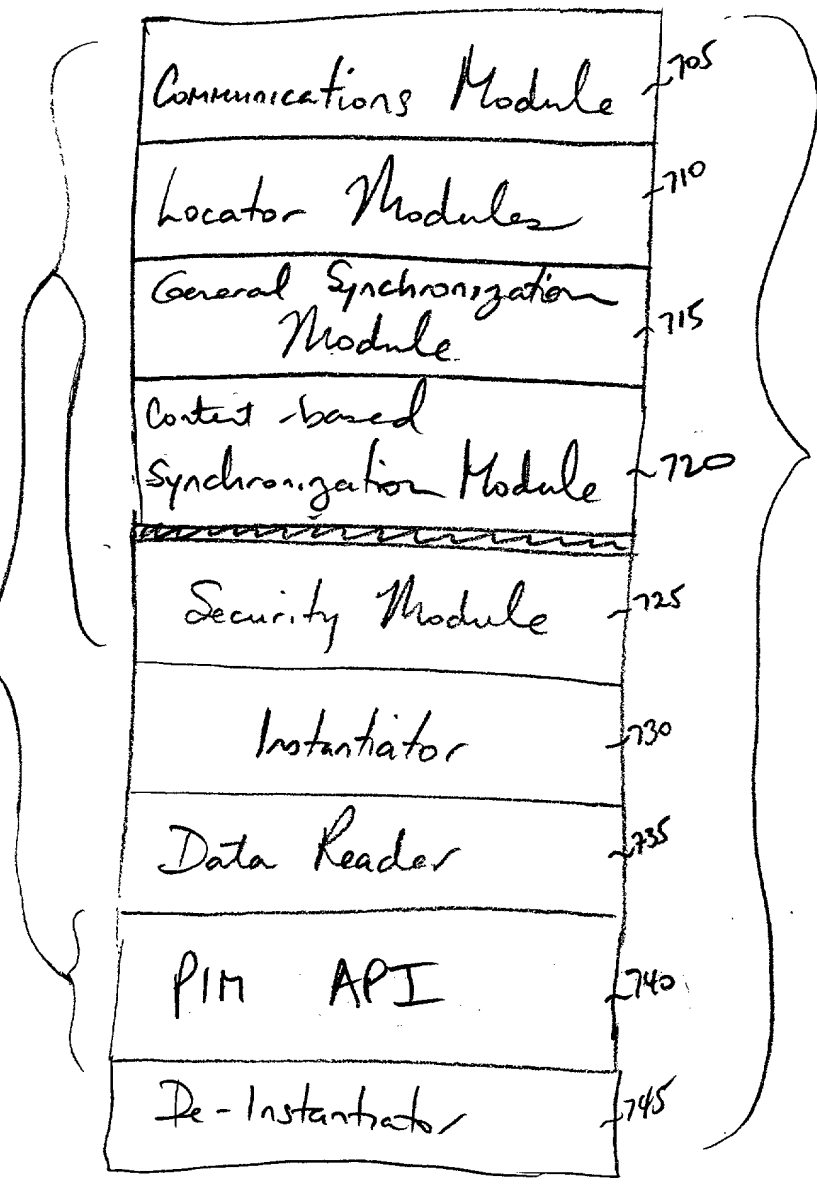 Communications Module 705
Locator Modules 710
General Synchronization
Module 715
Content-based
Synchronization Module 720
Security Module 725
Instantiator 730
Data Reader 735
PIM API 740
De-Instantiator 745